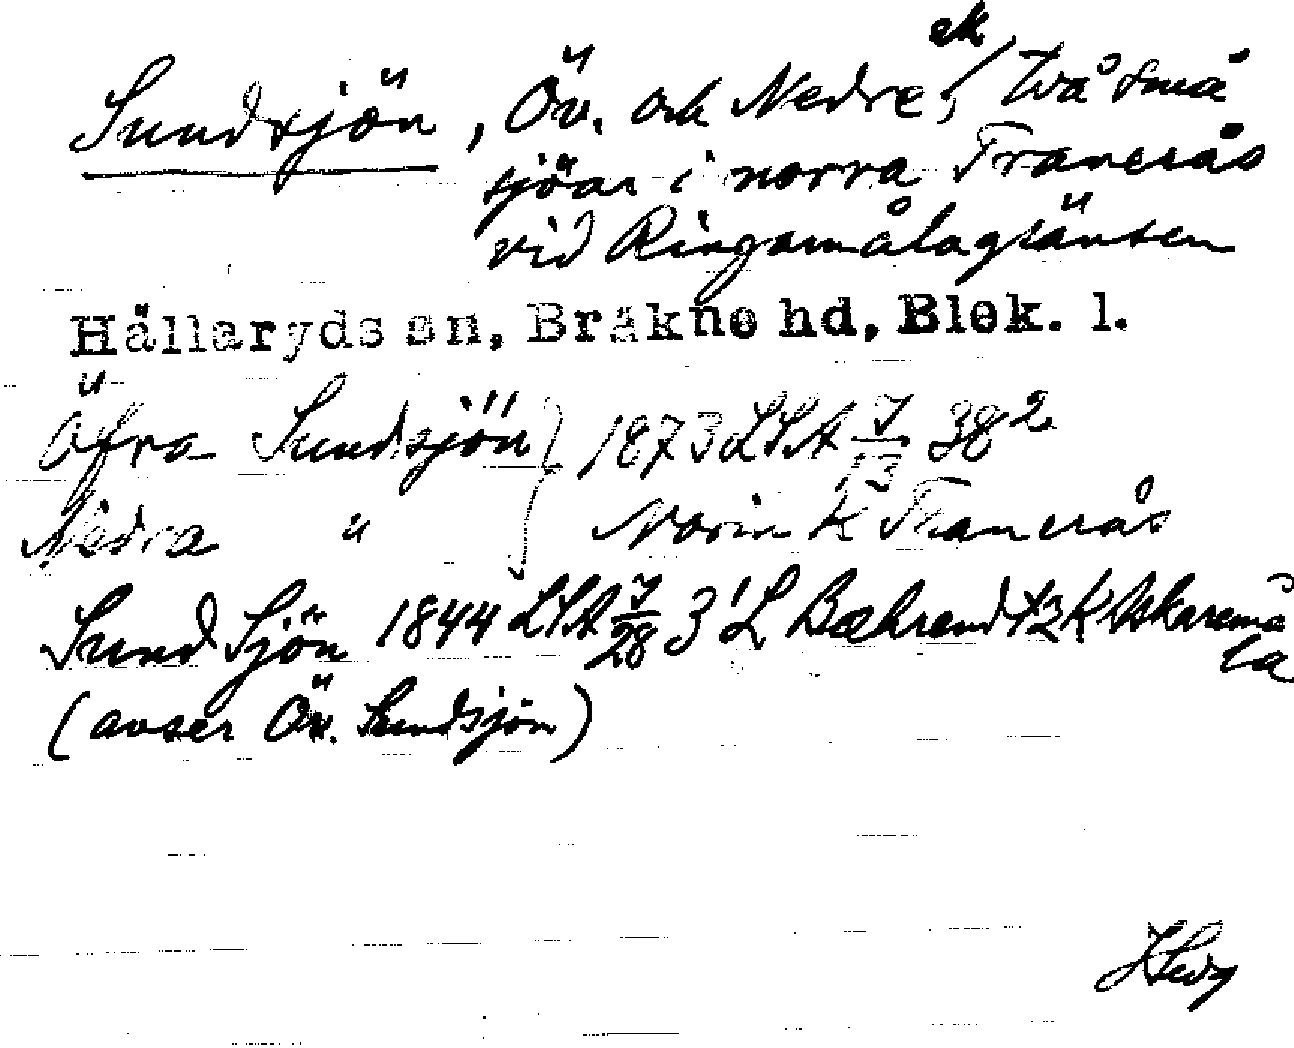 Sundsjön, Öv. och Nedre, ek två små
sjöar i norra Tranerås
vid Ringamålagränsen
Hällaryds sn, Bräkne hd, Blek. l.
Öfra Sundsjön } 1873 LSA 7/13 38²
Nedra " Norin K Tranerås
Sund Sjön 1844 LSA 7/28 3 L Bæhrendtz K Askaremå
la
(avser Öv. Sundsjön)